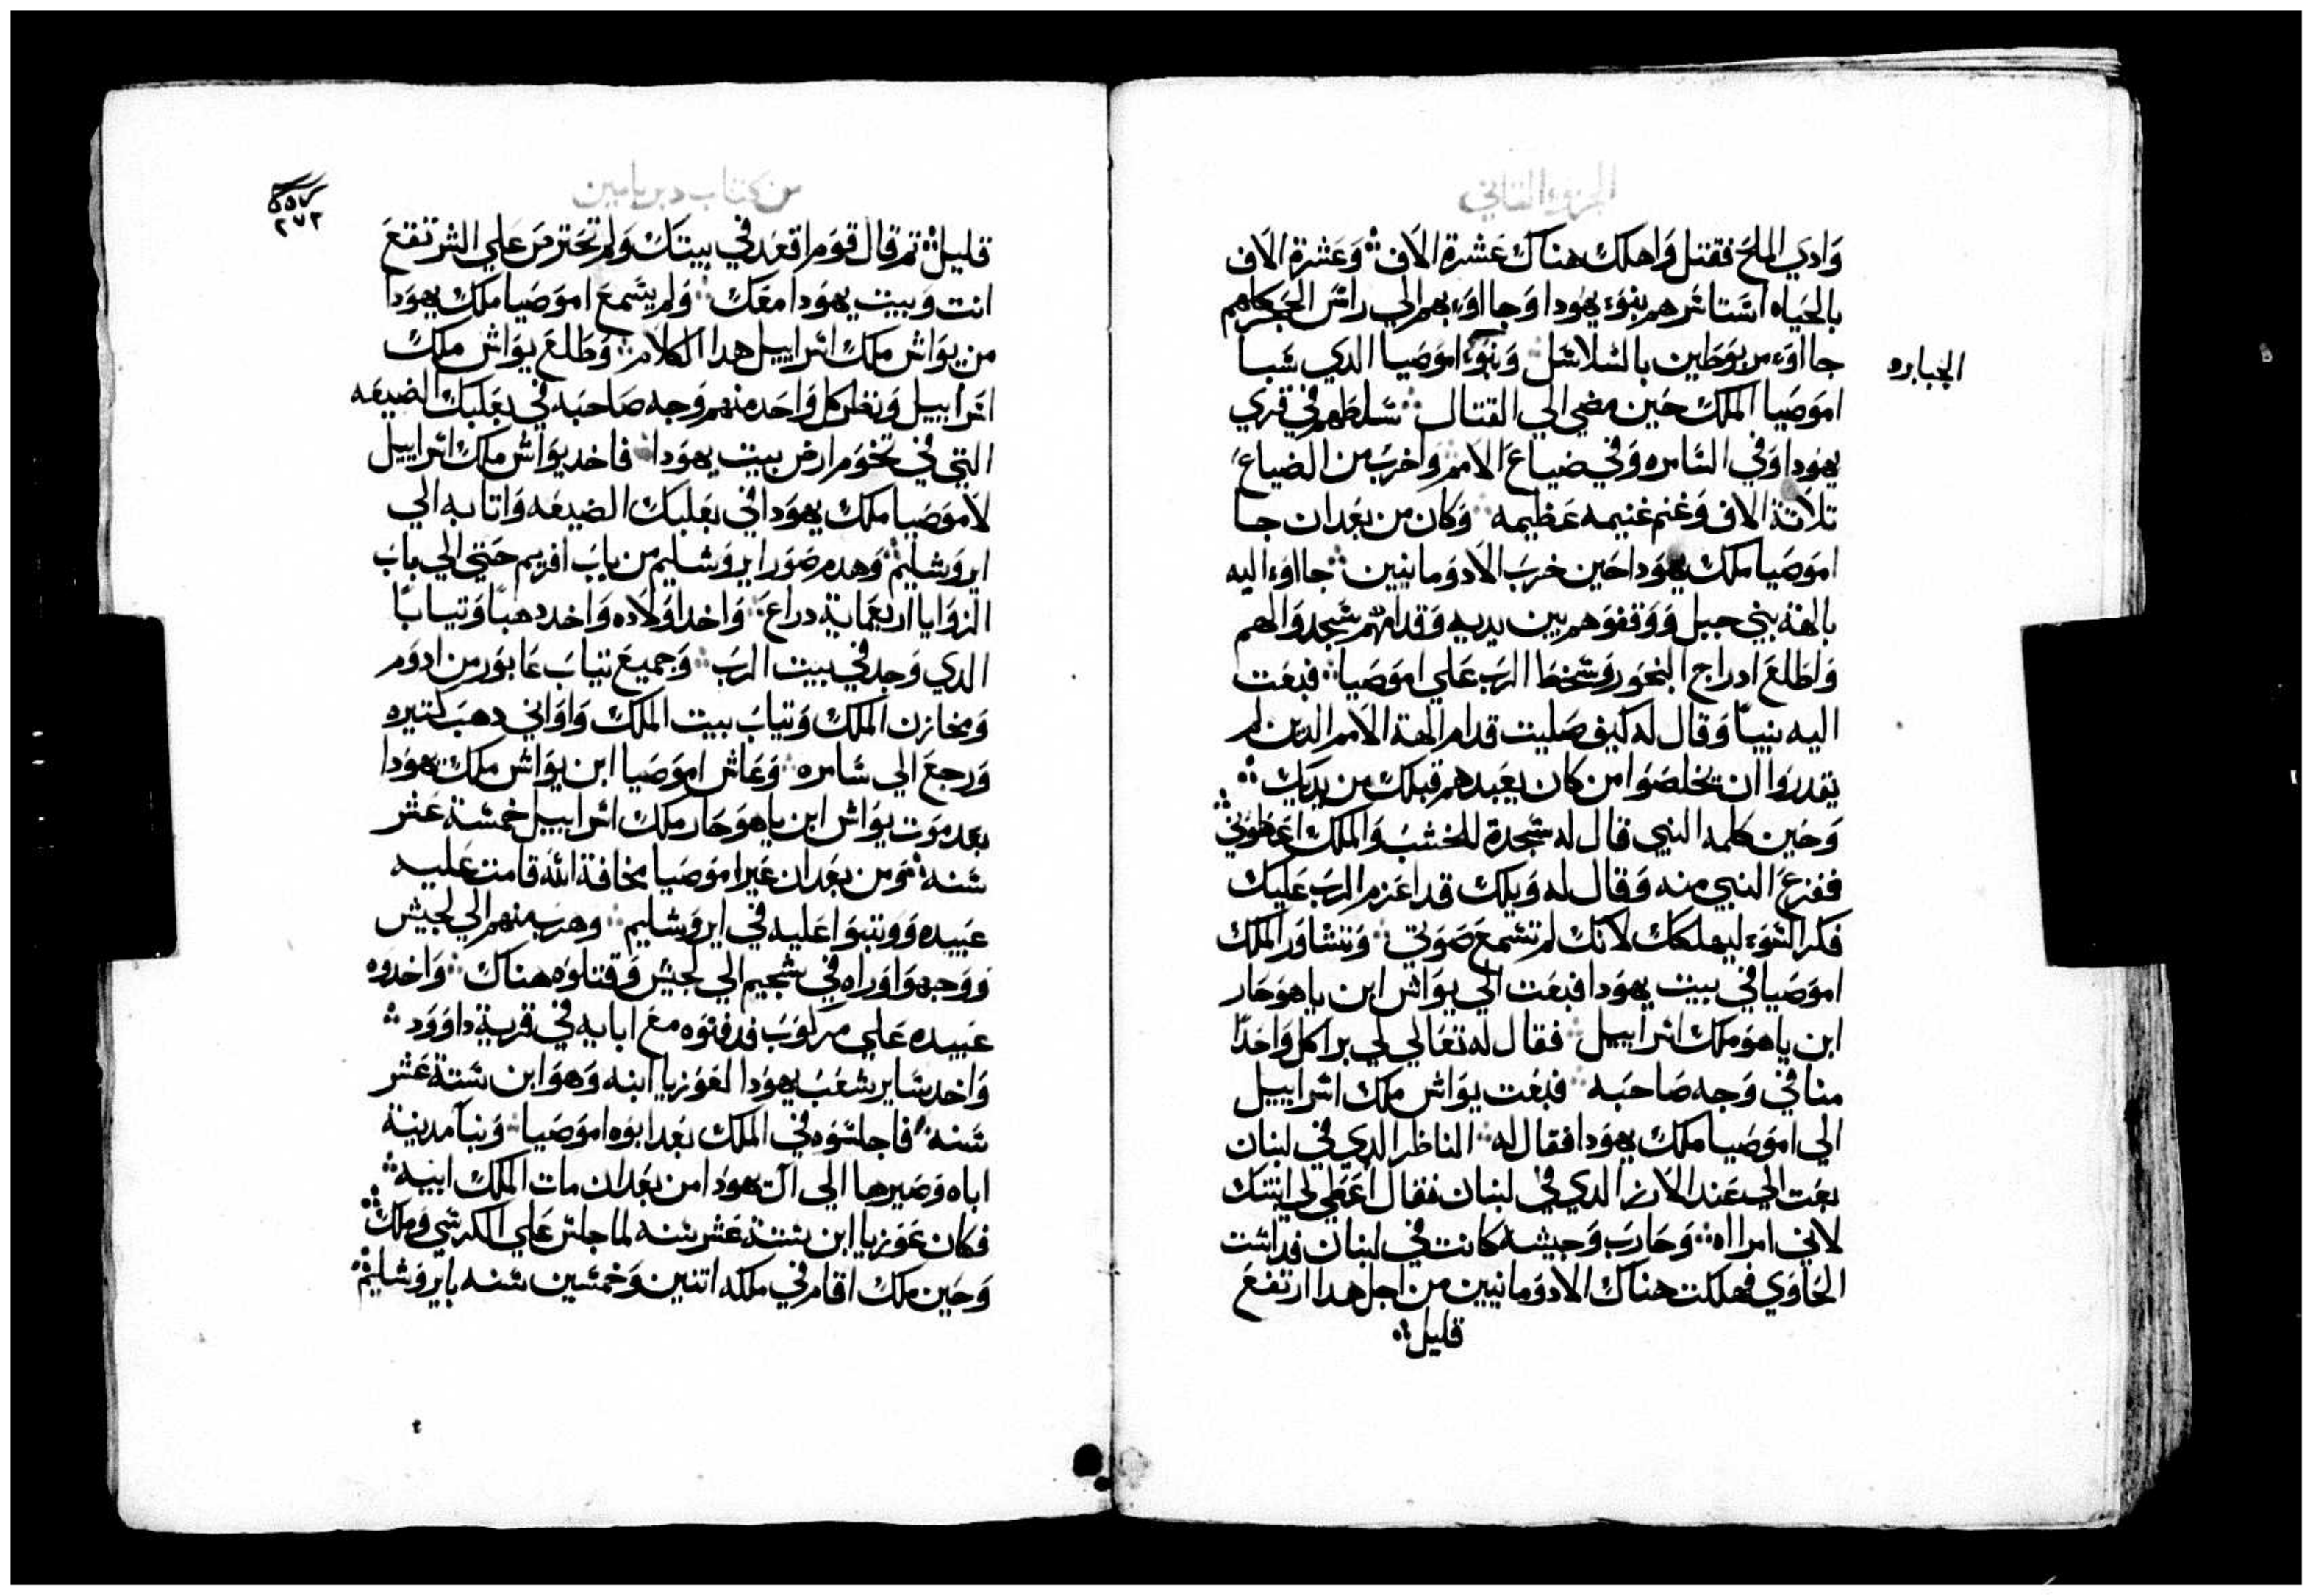 الجزو التاني
وَادي الملحَ فقتل وَاهلك هناك عَشرة الاَف ۞ وَعَشرة الاَف
بالحَياه اشتاشرهم بنوَء يهوَدا وَجااوَء بهم الي راسَ الجَكاهم
جااوَء مربوَطين بالسَلاسَل ۞ وَبنوَء اموَصَيا الدي سَبا
الجبابره
اموَصَيا الملك حَين مضي الي القتال ۞ سَلطهم في قري
يهوَدا وَفي السَامره وَفي ضياعَ الاَمم وَاخربَ من الضياعَ
تلاَتة الاَف وَغنم غنيمه عَظيمه ۞ وَكان من بعَدان جا
اموَصَيا ملك يهوَدا حَين خربَ الاَدوَمانيين ۞ جااوَء اليه
بالهة بني جبل وَوَقفوَهم بين يديه وَقدامهم سَجد وَالهم
وَاطلعَ ادراج البخوَر وَسَخط الربَ عَلي اموَصَيا ۞ فبعَت
اليه نبياً وَقال له كيف صَليت قدام الهة الاَمم الدين لم
يقدروَا ان يخلصَوَا من كان يعَبدهم قبلك من يديك ۞
وَحَين كلمه النبي قال له سَجدة للخشبَ وَالملك اعَطوَني ۞
ففزعَ النبي منه وَقال له وَيلك قد اعَزم الربَ عَليك
فكر السَوَء ليهلكك لاَنك لم تسَمعَ صَوَتي ۞ وَتشاوَر الملك
اموَصَيا في بيت يهوَدا فبعَت الي يوَاش ابن ياهوَحَار
ابن ياهوَ ملك اسَراييل ۞ فقال له تعَالي لي يرا كل وَاحَداً
منا في وَجه صَاحَبه ۞ فبعَت يوَاش ملك اسَراييل
الي اموَصَيا ملك يهوَدا فقال له ۞ الناظر الدي في لبنان
بعَت الي عَند الاَرز الدي في لبنان فقال اعَطي لي ابنتك
لاَبني امرااه ۞ وَحَاربَ وَجيشه كانت في لبنان فداسَت
الحَاوَي فهلكت هناك الاَدوَمانيين من اجل هدا ارتفعَ
قليل ۞
من كتاب دبريامين
٢٧٣
قليل ۞ تم قال قوَم اقعَد في بيتك وَلم تحَترصَ عَلي الشر تقعَ
انت وَبيت يهوَدا معَك ۞ وَلم يسَمعَ اموَصَيا ملك يهوَدا
من يوَاش ملك اسَراييل هدا الكلاَم ۞ وَطلعَ يوَاش ملك
اسَراييل وَنظر كل وَاحَد منهم وَجه صَاحَبه في بعَلبك الضيعَه
التي في تخوَم ارض بيت يهوَدا ۞ فاخد يوَاش ملك اسَراييل
لاَموَصَيا ملك يهوَدا في بعَلبك الضيعَه وَاتا به الي
ايروَشليم ۞ وَهدم صَوَر ايروَشليم من بابَ افريم حَتي الي بابَ
الزوَايا اربعَماية دراعَ ۞ وَاخد اوَلاَده وَاخد دهباً وَتياباً
الدي وَجد في بيت الربَ ۞ وَجميعَ تيابَ عَابوَر من ادوَم
وَمخازن الملك وَتيابَ بيت الملك وَاوَاني دهبَ كتيره
وَرجعَ الي سَامره ۞ وَعَاش اموَصَيا ابن يوَاش ملك يهوَدا
بعَد موَت يوَاش ابن ياهوَحَار ملك اسَراييل خمسَة عَشر
سَنه ۞ وَمن بعَدان عَبر اموَصَيا مخافة الله قامت عَليه
عَبيده وَوَتبوَا عَليه في ايروَشليم ۞ وَهربَ منهم الي لجيش
وَوَجهوَا وَراه في سَجيم الي لجيش وَقتلوَه هناك ۞ وَاخدوه
عَبيده عَلي مركوَبَ فدفنوَه معَ ابايه في قرية داوَوَد ۞
وَاخد سَاير شعَبَ يهوَدا لعَوَزيا ابنه وَهوَ ابن سَتة عَشر
سَنه ۞ فاجلسَوَه في الملك بعَد ابوَه اموَصَيا ۞ وَبنا مدينة
اباه وَصَيرها الي ال يهوَدا من بعَدان مات الملك ابيه ۞
فكان عَوَزيا ابن سَتة عَشر سَنه لما جلسَ عَلي الكرسَي وَملك ۞
وَحَين ملك اقام في ملكه اتنين وَخمسَين سَنه بايروَشليم ۞